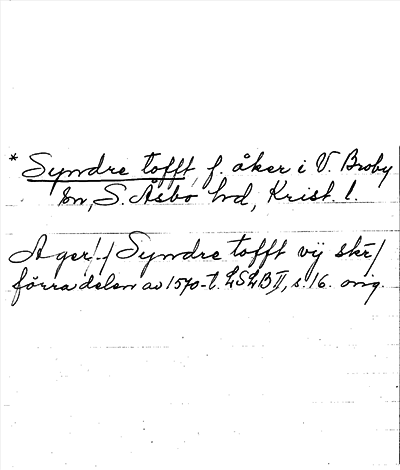 * Syndre tofft, f. åker i V. Broby
sn, S. Åsbo hd, Krist. l.
Ager/-/ Syndre tofft vij skr/
förra delen av 1570-t. LSLB II, s. 16. orig.